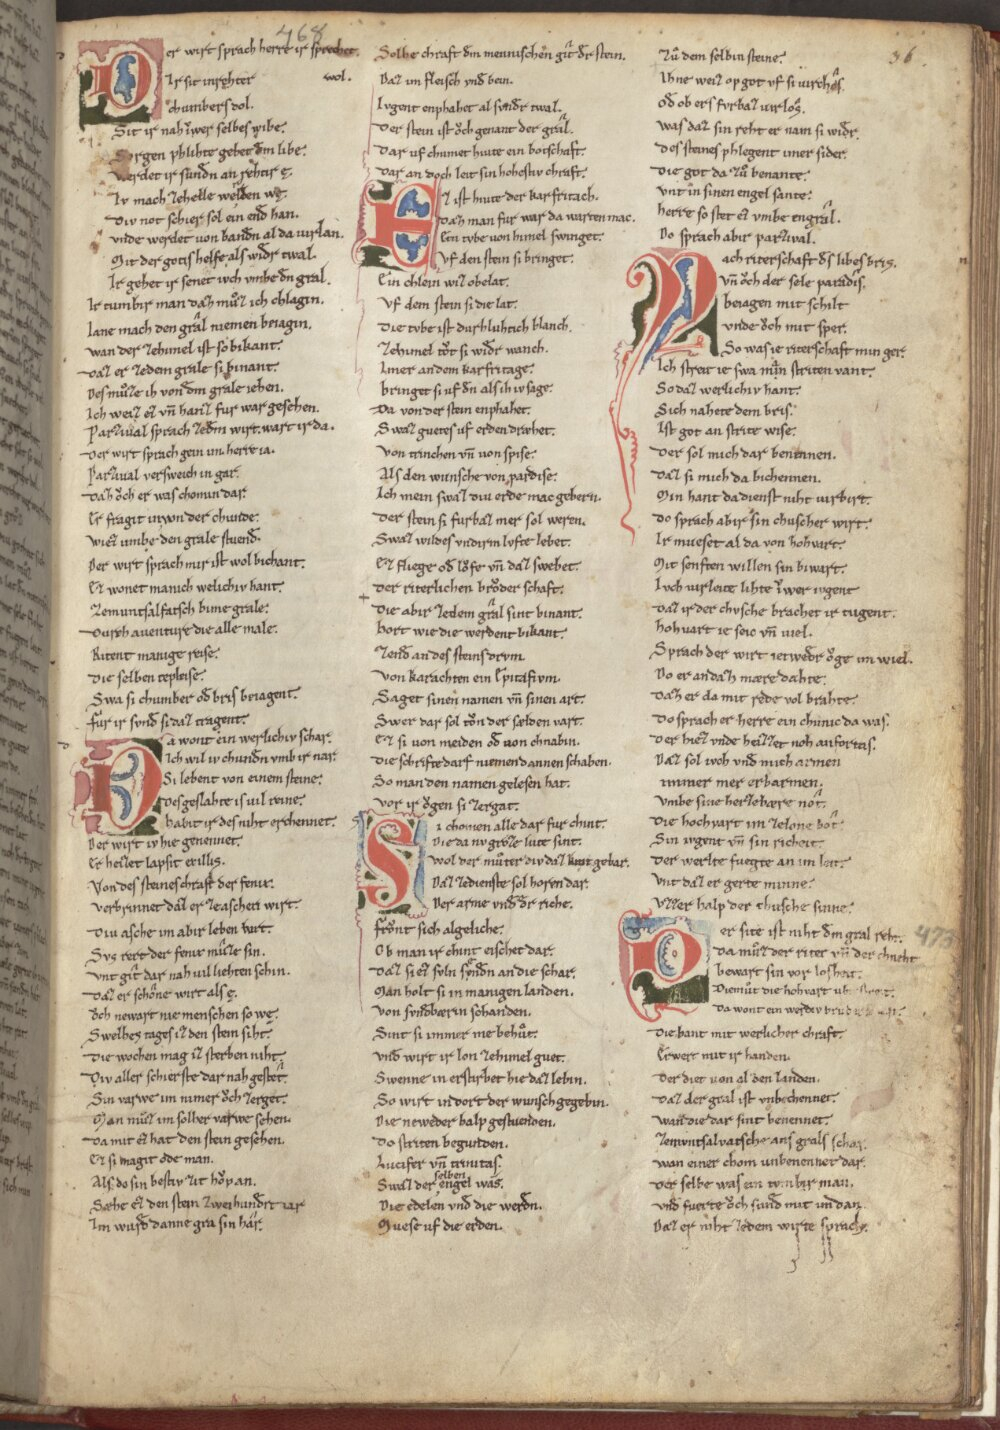 468
36
Der wirt sprach herre ir sprechet.
wol.
Ir sit in rehter
chumbers dol.
Sit ir nah iwer selbes wibe.
Sorgen phlihte gebet dm libe.
Werdet ir fundn an rehtir e.
Ir mach zehelle welden we.
Div not schier sol ein end han.
vnde werdet von bandn al da virlan.
Mit der gotis helfe als widr twal.
Ir gehet ir senet iwch vmbe dn gral.
Ir tumbir man daz muz ich chlagin.
Iane mach den gral niemen beiagin.
wan der zehimel ist so bikant.
Daz er zedem grale si binant.
Des muze ih von dm grale iehen.
Ich weiz ez vn hanz fur war gesehen.
Parzival sprach zedm wirt. wart ir da.
Der wirt sprach gein im. herre ia.
Parzival versweich in gar.
Daz och er was chomin dar.
Er fragit in von der chunde.
wiez umbe den grale stuend.
Der wirt sprach mir ist wol bichant.
Ez wonet manich welichiv hant.
Zemuntsalfatsch bime grale.
Durch auenture die alle male.
Ritent manige reise.
Die selben tepleise.
Swa si chumber od bris beiagent.
fur ir synd si daz tragent.
Da wont ein werlichiv schar.
Ich wil iv chundn vmb ir nar.
Si lebent von einem steine.
Des geslahte is vil reine.
habit ir des niht erchennet.
Der wirt iv hie genennet.
Er heizet lapsit exillis.
Von des steines chraft der fenix.
verbrinnet daz er zeaschen wirt.
Div asche im abir leben birt.
Svs rert der fenix muze sin.
vnt git dar nah vil liehten schin.
Daz er schone wirt als e.
och newart nie menschen so we.
Swelhes tages iz den stein siht.
Die wochen mag iz sterben niht.
Div aller schierste dar nah gestet.
Sin varwe im nimer och zerget.
Man muz im solher varwe iehen.
Da mit ez hat den stein gesehen.
Ez si magit ode man.
Als do sin bestiv zit hop an.
Sæhe ez den stein zweihundrt iar
Im wurd danne gra sin har.
Solhe chraft dm mennischen git dr stein.
Daz im fleisch vnd bein.
Ivgent enphahet al svndr twal.
Der stein ist och genant der gral.
Dar uf chumet hiute ein botschaft.
Dar an doch leit sin hohestiv chraft.
Ez ist hiute der karfritach.
Daz man fur war da warten mac.
Ein tvbe von himel swinget.
Vf den stein si bringet.
Ein chlein wiz obelat.
Vf dem stein si die lat.
Die tvbe ist durhluhtich blanch.
Zehimel tot si widr wanch.
Imer an dem karfritage.
bringet si uf dn als ih iv sage.
Da von der stein enphahet.
Swaz guetes uf erden dræhet.
Von trinchen vn von spise.
Als den wunsche von pardise.
Ich mein swaz div erde mac gebern.
Der stein si furbaz mer sol weren.
Swaz wildes vndirm lvfte lebet.
Ez fliege od lofe vn daz swebet.
Der riterlichen broder schaft.
Die abir zedem gral sint binant.
hort wie die werdent bikant.
Zend an des steins drvm.
Von karachten ein Epitafivm.
Saget sinen namen vn sinen art.
Swer dar sol ton der sælden vart.
Ez si von meiden od von chnabin.
Die schrifte darf niemend annen schaben.
So man den namen gelesen hat.
vor ir ogen si zergat.
Si chomen alle dar fur chint.
Die da nv groze lute sint.
Wol der muter div daz kint gebar.
Daz zedienste sol horen dar.
Der arme vnd dr riche.
front sich algeliche.
Ob man ir chint eischet dar.
Daz si ez svln syndn an die schar.
Man holt si in manigen landen.
Von syndbærin schanden.
Sint si immer me behut.
vnd wirt ir lon zehimel guet.
Swenne in erstirbet hie daz lebin.
So wirt in dort der wunsch gegebin.
Die neweder halp gestuenden.
Do striten begunden.
Lucifer vn trinitas.
Swaz der selben engel was.
Die edelen vnd die werdn.
Muese uf die erden.
Zu dem selbin steine.
Ihne weiz op got vf si virchos.
Od ob ers fvrbaz virlos.
was daz sin reht er nam si widr.
Des steines phlegent imer sider.
Die got da zu benante.
Vnt in sinen engel sante.
herre so stet ez vmbe engral.
Do sprach abir parzival.
Mach riterschaft ds libes bris.
Vn och der sele paradis.
beiagen mit schilt
vnde och mit sper.
So was ie riterschaft min ger.
Ich streit ie swa min striten vant.
So daz werlichiv hant.
Sich nahete dem bris.
Ist got an strite wise.
Der sol mich dar benennen.
Daz si mich da bichennen.
Min hant da dienst niht virbirt.
Do sprach abir sin chuscher wirt.
Ir mueset al da von hohvart.
Mit senften willen sin biwart.
Ivch virleite lihte iwer ivgent
Daz ir der chvsche brachet ir tugent.
hohvart ie seic vn viel.
Sprach der wirt ietwedr oge im wiel.
Do er an daz mære dahte.
Daz er da mit rede vol brahte.
Do sprach er herre ein chinic da was.
Der hiez vnde heizzet noh anfortas.
Daz sol ivch vnd mich armen
immer mer erbarmen.
vmbe sine herzebære not.
Die hochvart im zelone bot.
Sin ivgent vn sin richeit.
Der werlte fuegte an im leit.
vnt daz er gerte minne.
vzzer halp der chusche sinne.
473
Der site ist niht dm gral reht.
Da muz der riter vn der chneht
bewart sin vor losheit.
Diemut die hohvart
Da wont ein werdiv
Die hant mit werlicher chraft.
Erwert mit ir handen.
Der diet von al den landen.
Daz der gral ist vnbechennet.
wan die dar sint benennet.
Zemvntsalvatsche ans grals schar.
wan einer chom unbenennet dar.
Der selbe was ein tvmbir man.
vnd fuerte och sund mit im dan.
Daz er niht zedem wirte sprach.